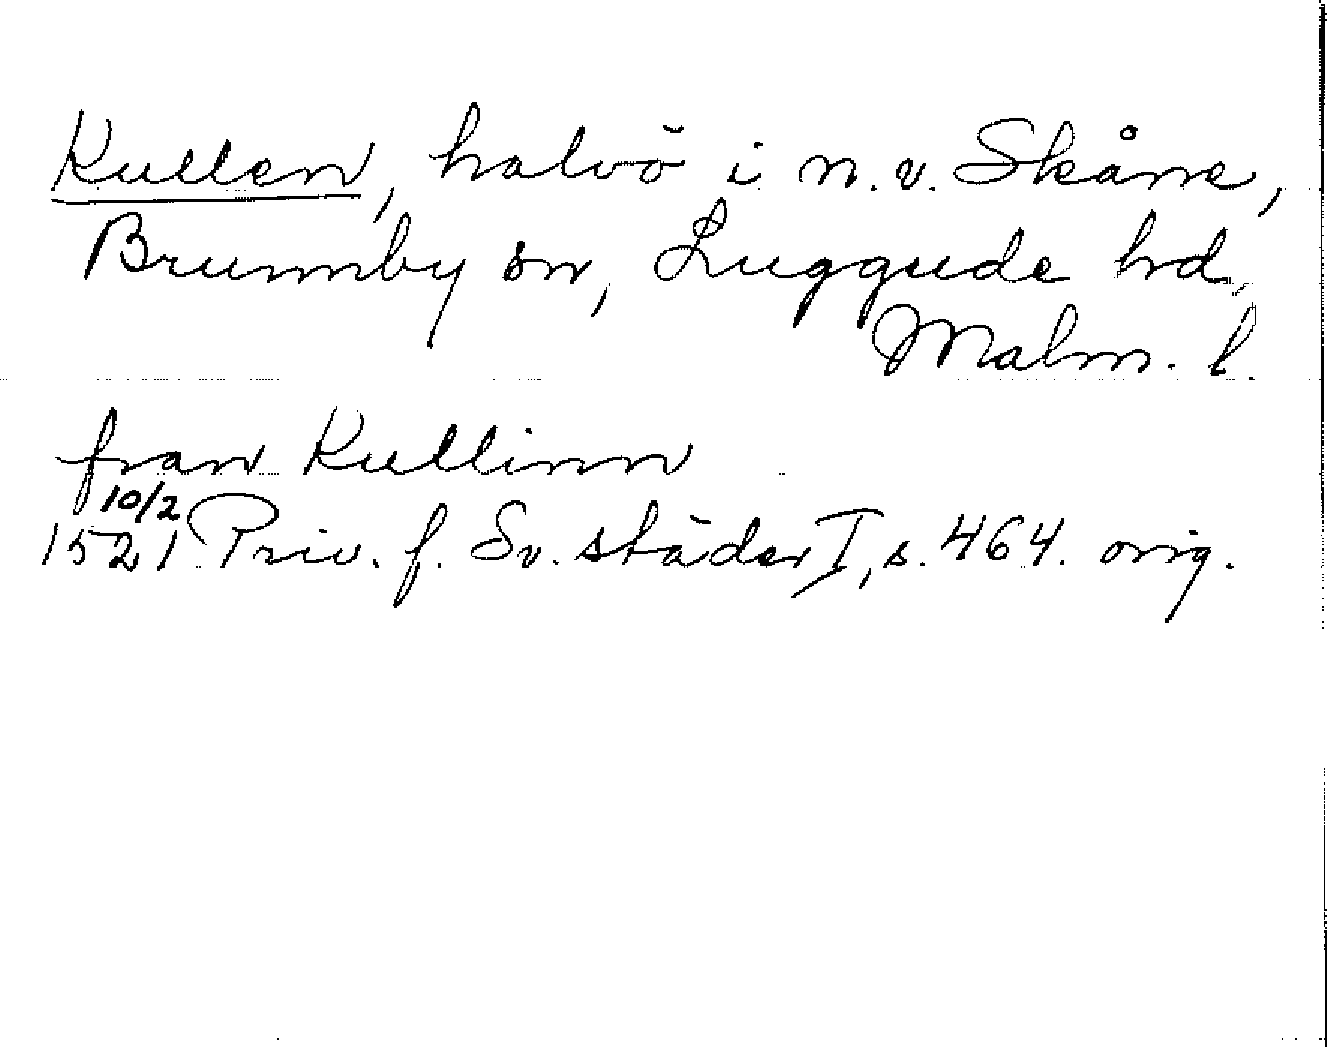 Kullen, halvö i n.v. Skåne,
Brunnby sn, Luggude hd,
Malm. l.
fran Kullinn
10/2
1521 Priv. f. Sv. städer I, s. 464. orig.